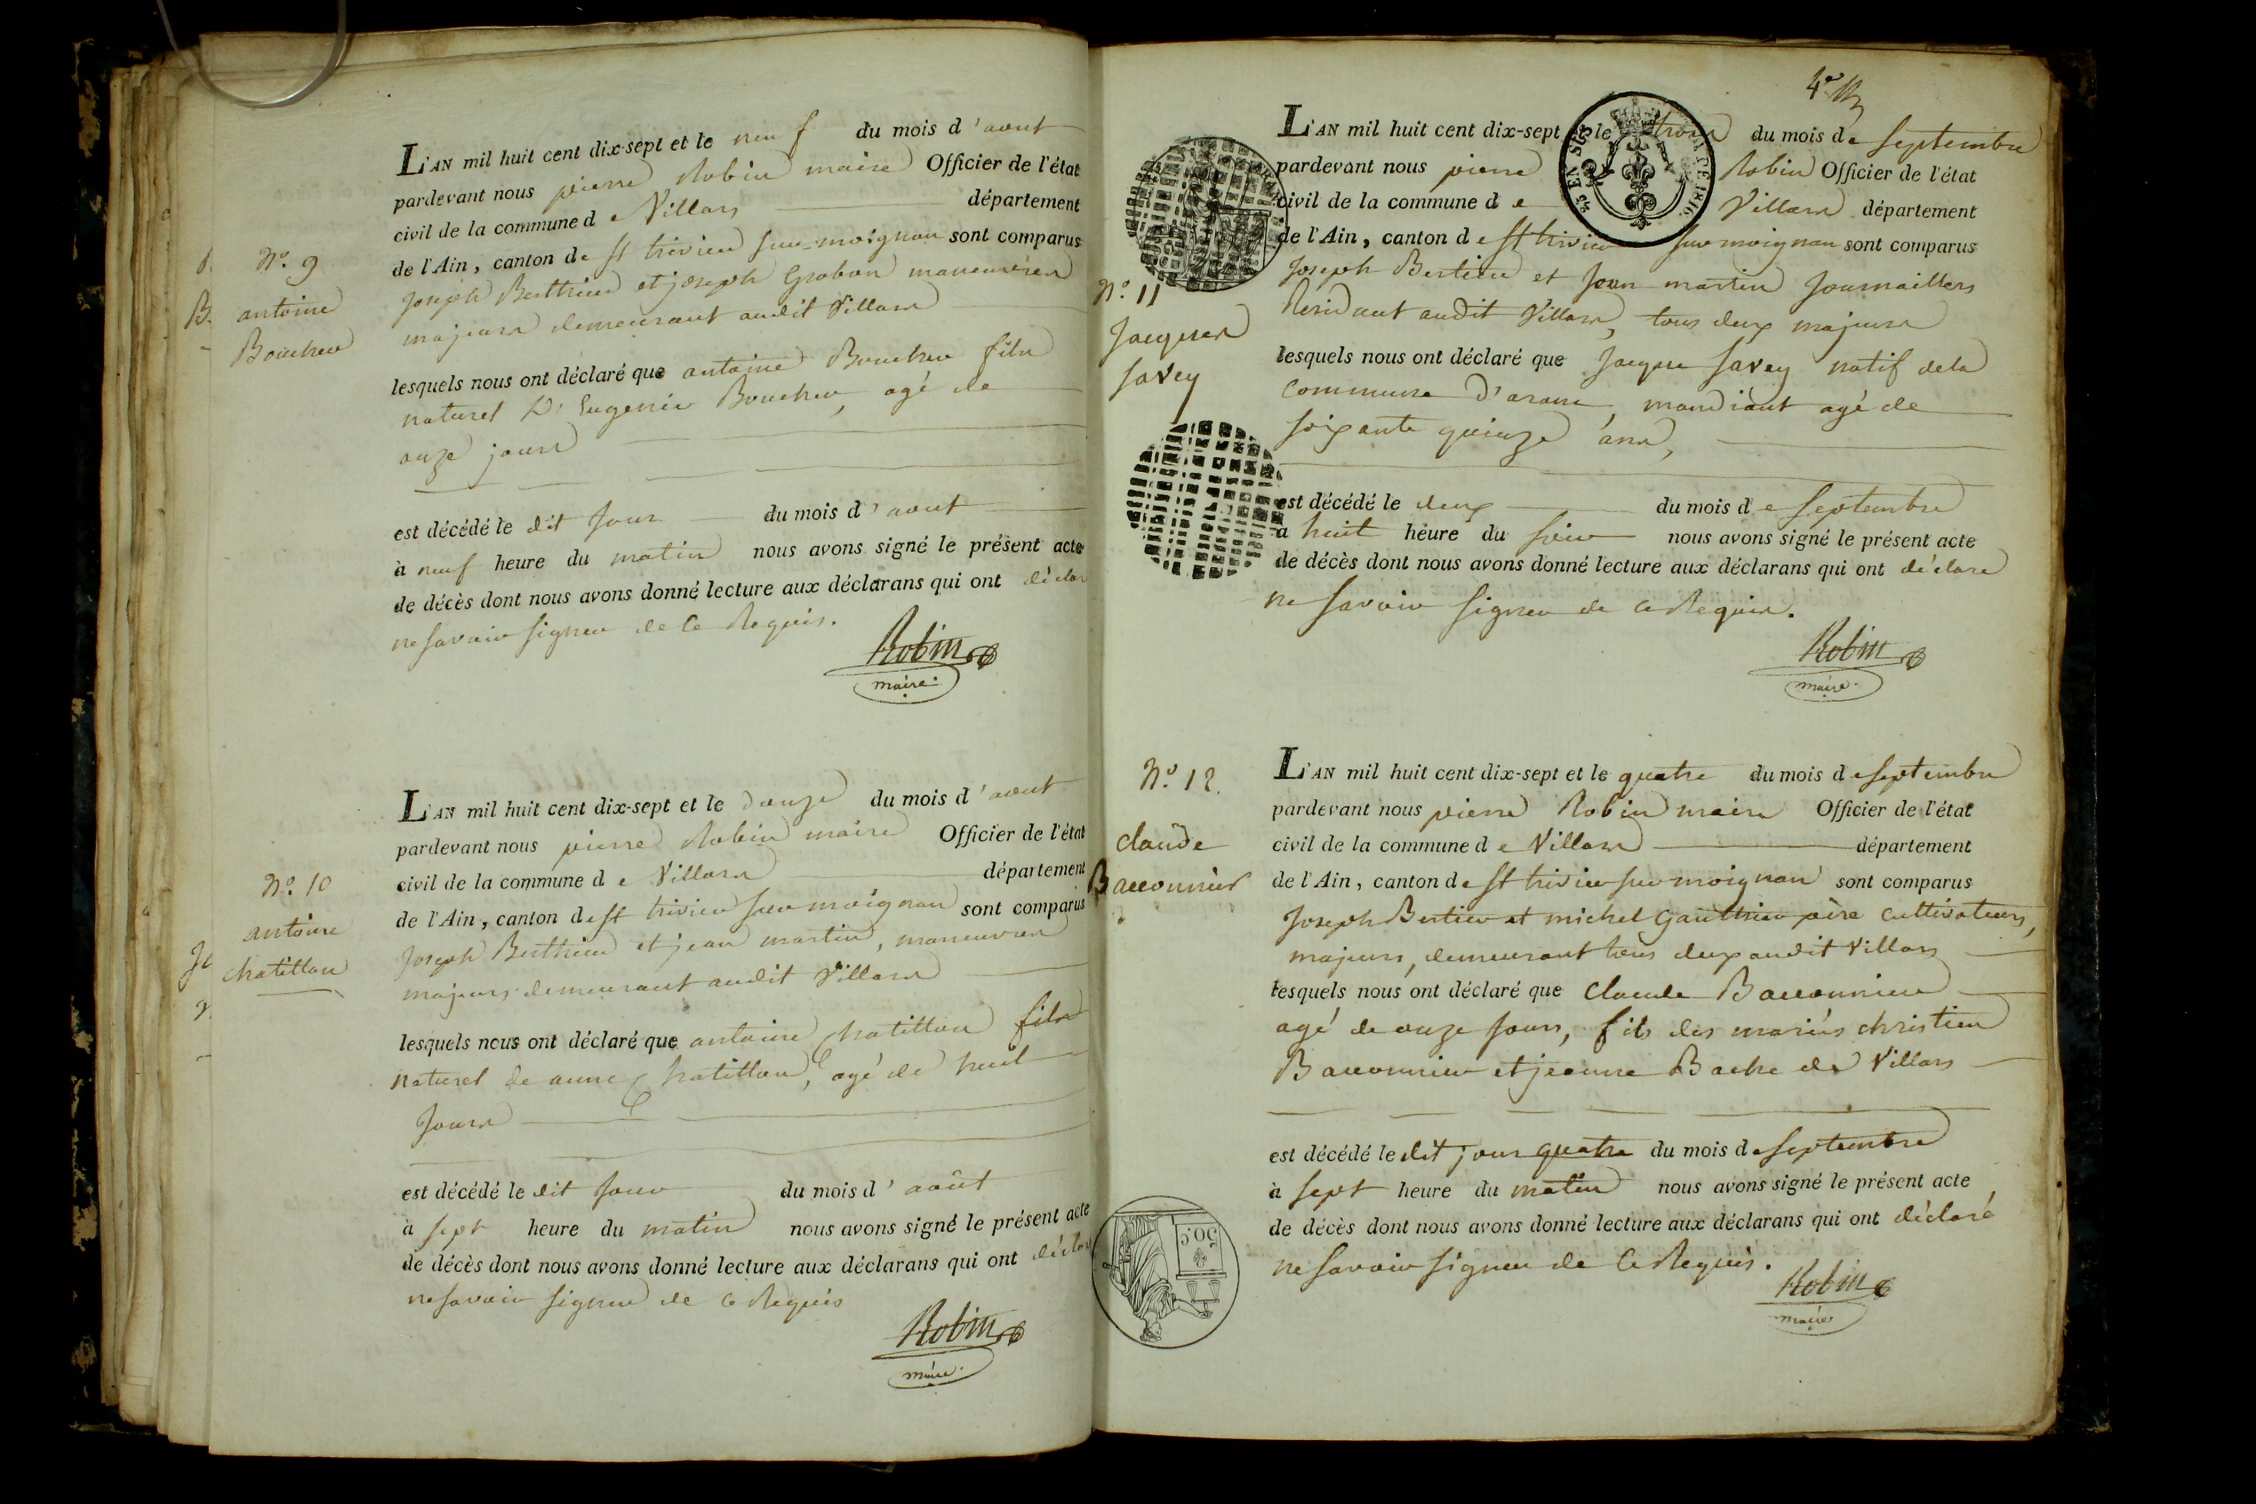 N.º 9
antoine
Bouchu
L'AN mil huit cent dix-sept et le neuf du mois d'aout
pardevant nous pierre Robin maire Officier de l'état
civil de la commune de Villars département
de l'Ain, canton de st trivier sur moignan sont comparus
joseph Berthier et joseph manœuvres
majeurs demeurant audit Villars
lesquels nous ont déclaré que antoine fils
naturel D'Eugenie agé de
onze jours
est décédé le dit jour du mois d'aout
à neuf heure du matin nous avons signé le présent acte
de décès dont nous avons donné lecture aux déclarans qui ont déclaré
ne savoir signer de ce Requis.
Robin
maire.
N.º 10
antoine
chatillon
L'AN mil huit cent dix-sept et le douze du mois d'aout
pardevant nous pierre Robin maire Officier de l'état
civil de la commune de Villars département
de l'Ain, canton de st trivier sur moignan sont comparus
joseph Berthier et jean martin, manœuvres
majeurs demeurant audit Villars
lesquels nous ont déclaré que antoine chatillon fils
naturel de anne chatillon, agé de huit
jours
est décédé le dit jour du mois d'août
à sept heure du matin nous avons signé le présent acte
de décès dont nous avons donné lecture aux déclarans qui ont déclaré
ne savoir signer de ce Requis
Robin
maire.
4e
N.º 11
Jacques
Savey
L'AN mil huit cent dix-sept et le trois du mois de septembre
pardevant nous pierre Robin Officier de l'état
civil de la commune de Villars département
de l'Ain, canton de st trivier sur moignan sont comparus
joseph Bertier et jean martin journaillers
Residant audit Villars, tous deux majeurs
lesquels nous ont déclaré que jacque Savey natif de la
commune d'arane, mandiant agé de
soixante quinze ans,
est décédé le deux du mois de septembre
à huit heure du soir nous avons signé le présent acte
de décès dont nous avons donné lecture aux déclarans qui ont déclaré
ne savoir signer de ce Requis.
Robin
maire.
N.º 12.
claude
L'AN mil huit cent dix-sept et le quatre du mois de septembre
pardevant nous pierre Robin maire Officier de l'état
civil de la commune de Villars département
de l'Ain, canton de st trivier sur moignan sont comparus
joseph Bertier et michel Gauthier père cultivateurs,
majeurs, demeurant tous deux audit Villars
lesquels nous ont déclaré que claude
agé de onze jours, fils des mariés christien
et jeanne de Villars
est décédé le dit jour quatre du mois de septembre
à sept heure du matin nous avons signé le présent acte
de décès dont nous avons donné lecture aux déclarans qui ont déclaré
ne savoir signer de ce Requis.
Robin
maire
50C